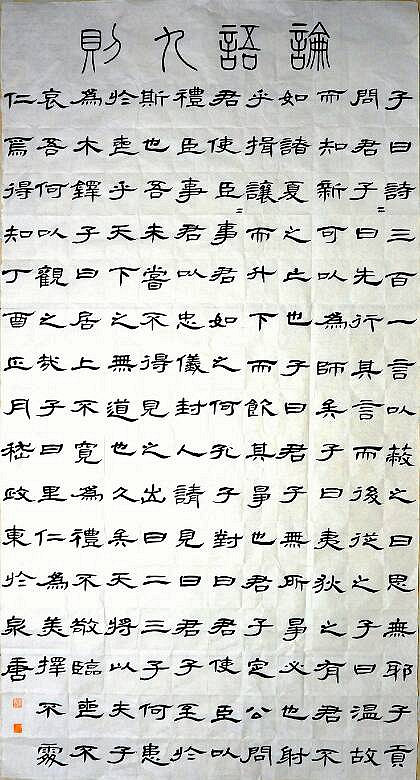 論語九則
子曰詩三百一言以蔽之曰思無耶子貢
問君子〻曰先行其言而後從之子曰溫故
而知新可以為師矣子曰夷狄之有君不
如諸夏之亡也子曰君子無所爭必也射
乎揖讓而升下而飲其爭也君子定公問
君使臣〻事君如之何孔子對曰君使臣以
禮臣事君以忠儀封人請見曰君子至於
斯也吾未嘗不得見之出曰二三子何患
於喪乎天下之無道也久矣天將以夫子
為木鐸子曰居上不寬為禮不敬臨喪不
哀吾何以觀之哉子曰里仁為美擇不處
仁焉得知丁酉正月嵇政東於泉唐